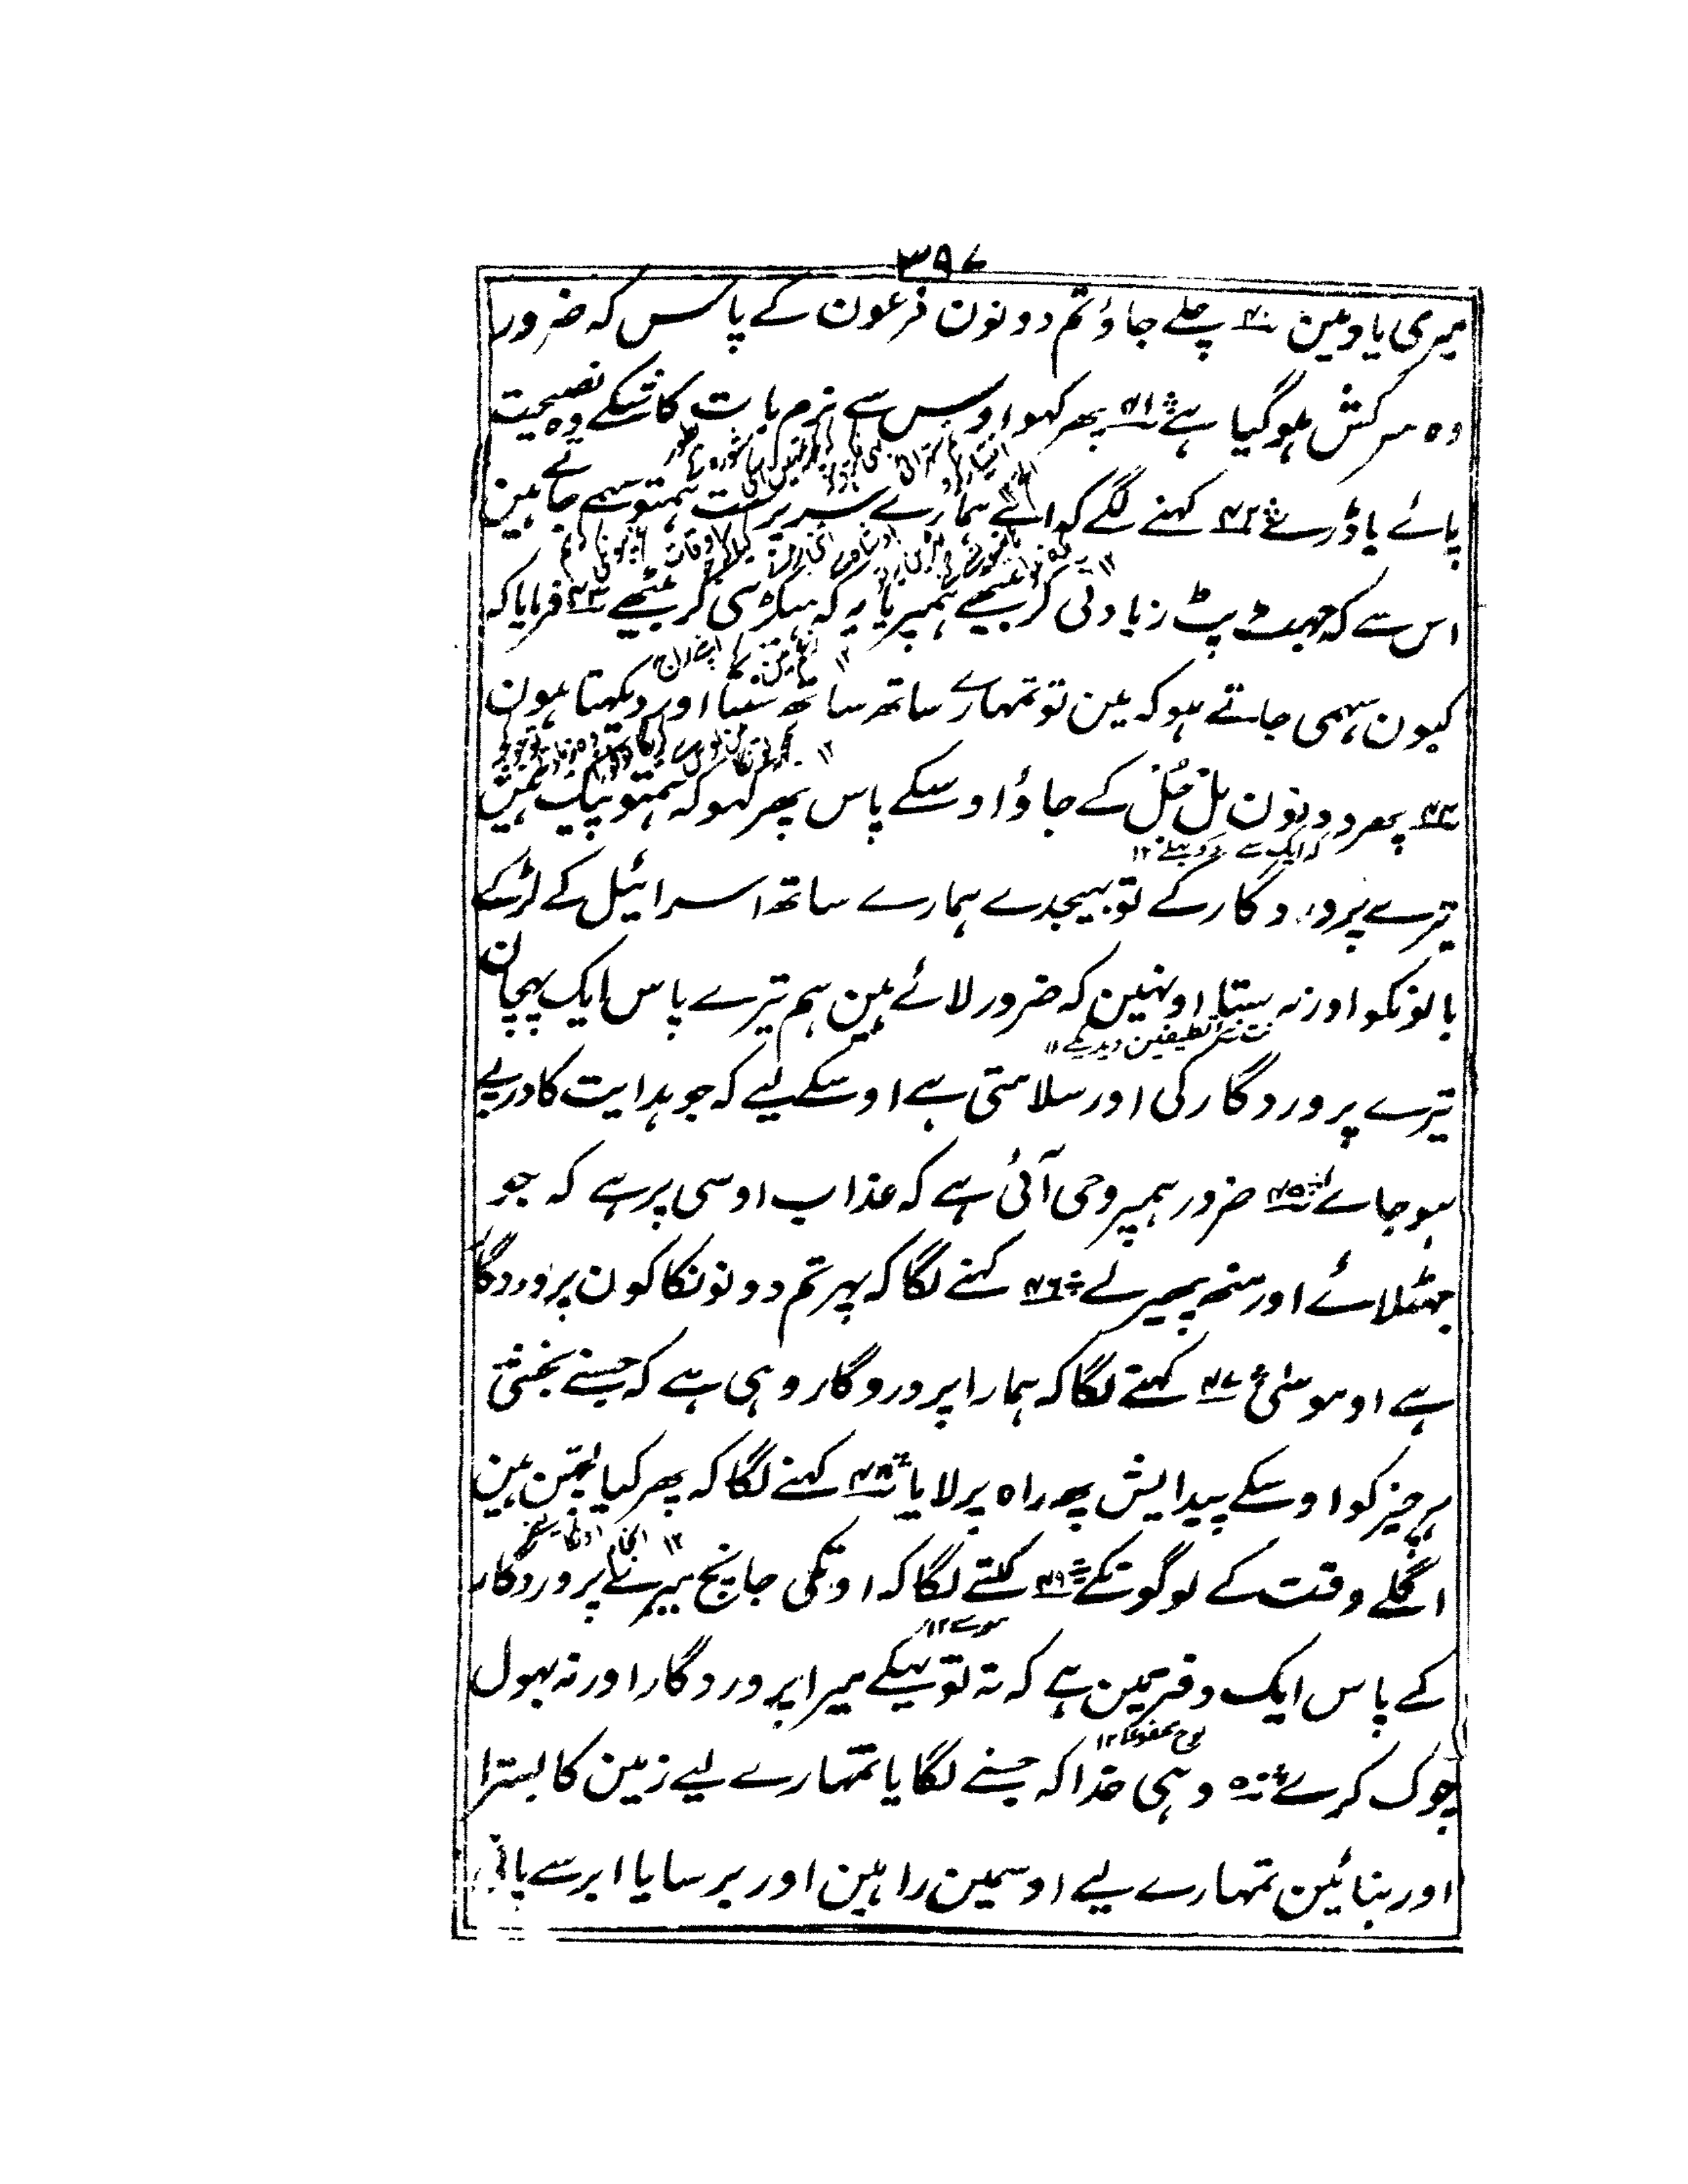 ۳۹۷
میری یاد مین ۴۰؎ چلے جاؤ تم دونون فرعون کے پاس کہ ضرور
وہ سرکش ہو گیا ہے ۴۱؎ پھر کہو اوس سے نرم بات کاشکے وہ نصیحت
پائے یا ڈرے ۴۲؎ کہنے لگے کہ اے ہمارے سرپرست ہمتو سہمے جاتے ہین
اس سے کہ جھٹ پٹ زیادتی کر بیٹھے ہمپر یا یہ کہ ہیکڑی کر بیٹھے ۴۳؎ فرمایا کہ
کیون سہمی جاتے ہو کہ مین تو تمہارے ساتھ ساتھ سنتا اور دیکہتا ہون
۴۴؎ پھر دونون مل جُل کے جاؤ اوسکے پاس پھر کہو کہ ہمتو پیک ہین
کہ ایک سے دو بھلے ۱۲
تیرے پروردگار کے تو بہیجدے ہمارے ساتھ اسرائیل کے لڑکے
بالونکو اور نہ ستا اونہین کہ ضرور لائے ہین ہم تیرے پاس ایک پہچان
تکلیفین دیدیکے ۱۲
تیرے پروردگار کی اور سلامتی ہے اوسکے لیے کہ جو ہدایت کا درپے
ہو جاے ۴۵؎ ضرور ہمپر وحی آئی ہے کہ عذاب اوسی پر ہے کہ جو
جہٹلائے اور منھ پھیر لے ۴۶؎ کہنے لگا کہ پہر تم دونونکا کون پروردگار
ہے او موسیٰ ۴۷؎ کہنے لگا کہ ہمارا پروردگار وہی ہے کہ جسنے بخشی
ہر چیز کو اوسکے پیدایش پھر راہ پر لایا ۴۸؎ کہنے لگا کہ پھر کیا گتین ہین
اگلے وقت کے لوگونکے ۴۹؎ کہنے لگا کہ اونکی جانچ میرے پروردگار
موسے ۱۲
کے پاس ایک دفتر مین ہے کہ نہ تو بہکے میرا پروردگار اور نہ بہول
لوح محفوظ ۱۲
چوک کرے ۵۰؎ وہی خدا کہ جسنے لگایا تمہارے لیے زمین کا بسترا
اور بنائین تمہارے لیے اوسمین راہین اور برسایا ابر سے پانی